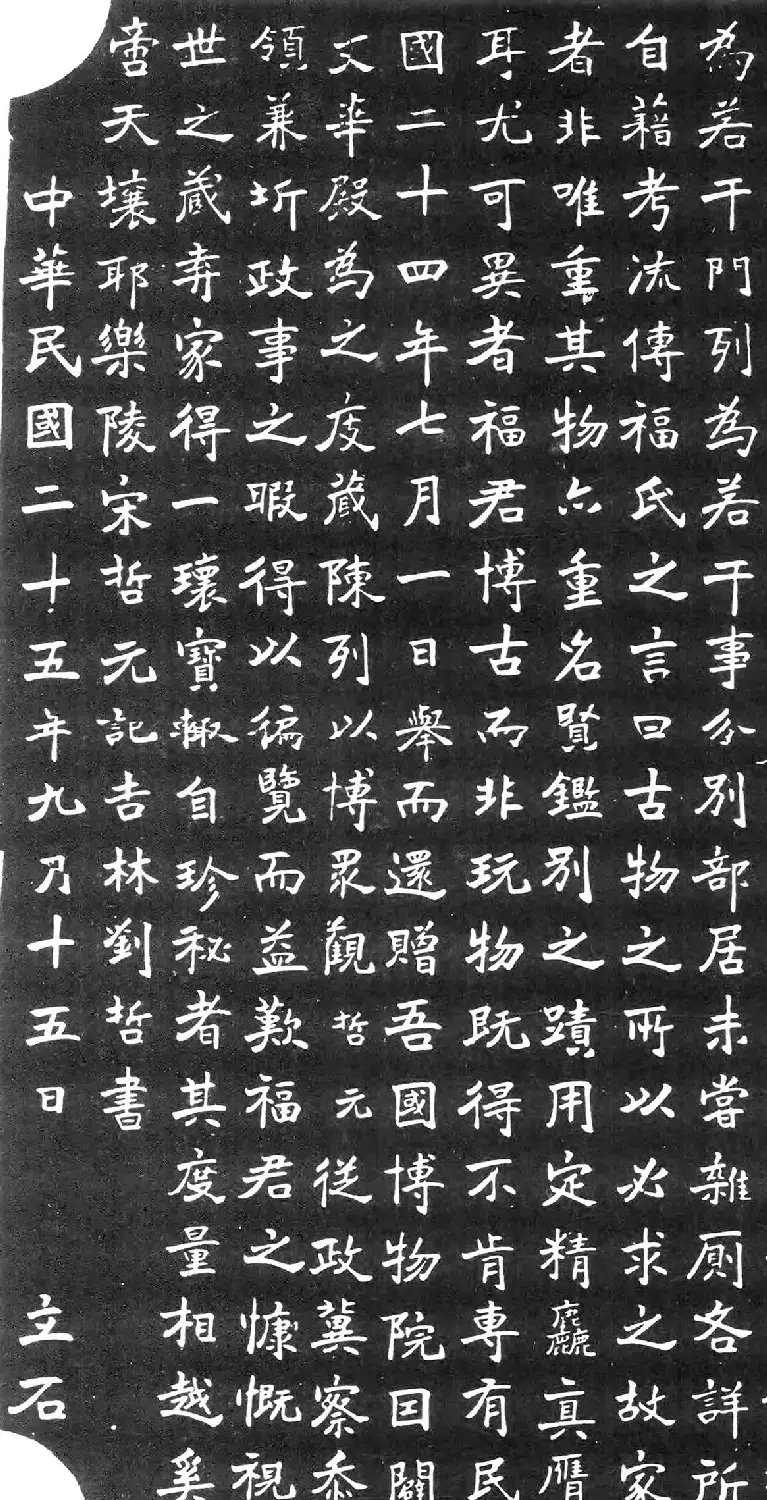 為若干門列為若干事分別部居未嘗雜厠各詳所
自藉考流傳福氏之言曰古物之所以必求之故家
者非唯重其物亦重名賢鑑別之蹟用定精麤真贋
耳尤可異者福君博古而非玩物既得不肯專有民
國二十四年七月一日舉而還贈吾國博物院因闢
文華殿為之庋藏陳列以博眾觀哲元從政冀察忝
領兼圻政事之暇得以徧覽而益歎福君之慷慨視
世之藏弆家得一瓌寶輙自珍秘者其度量相越奚
啻天壤耶樂陵宋哲元記吉林劉哲書
中華民國二十五年九月十五日 立石